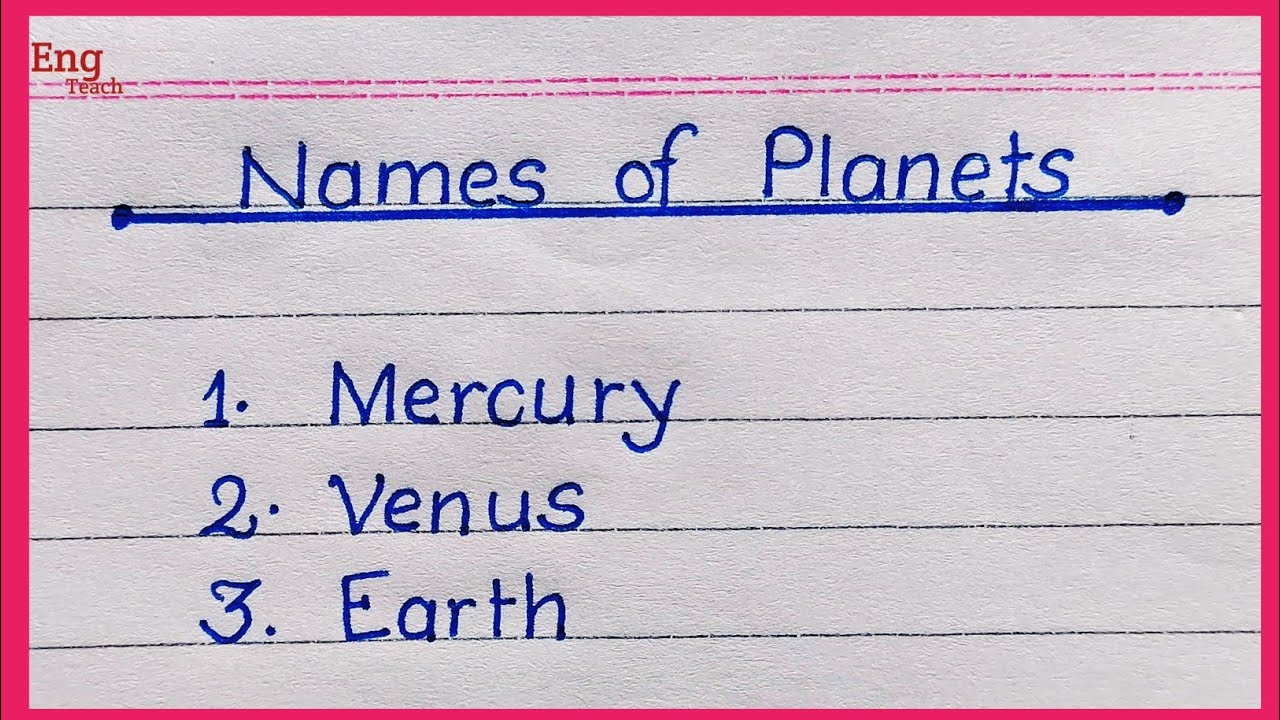 Eng
Teach
Names of Planets
1. Mercury
2. Venus
3. Earth